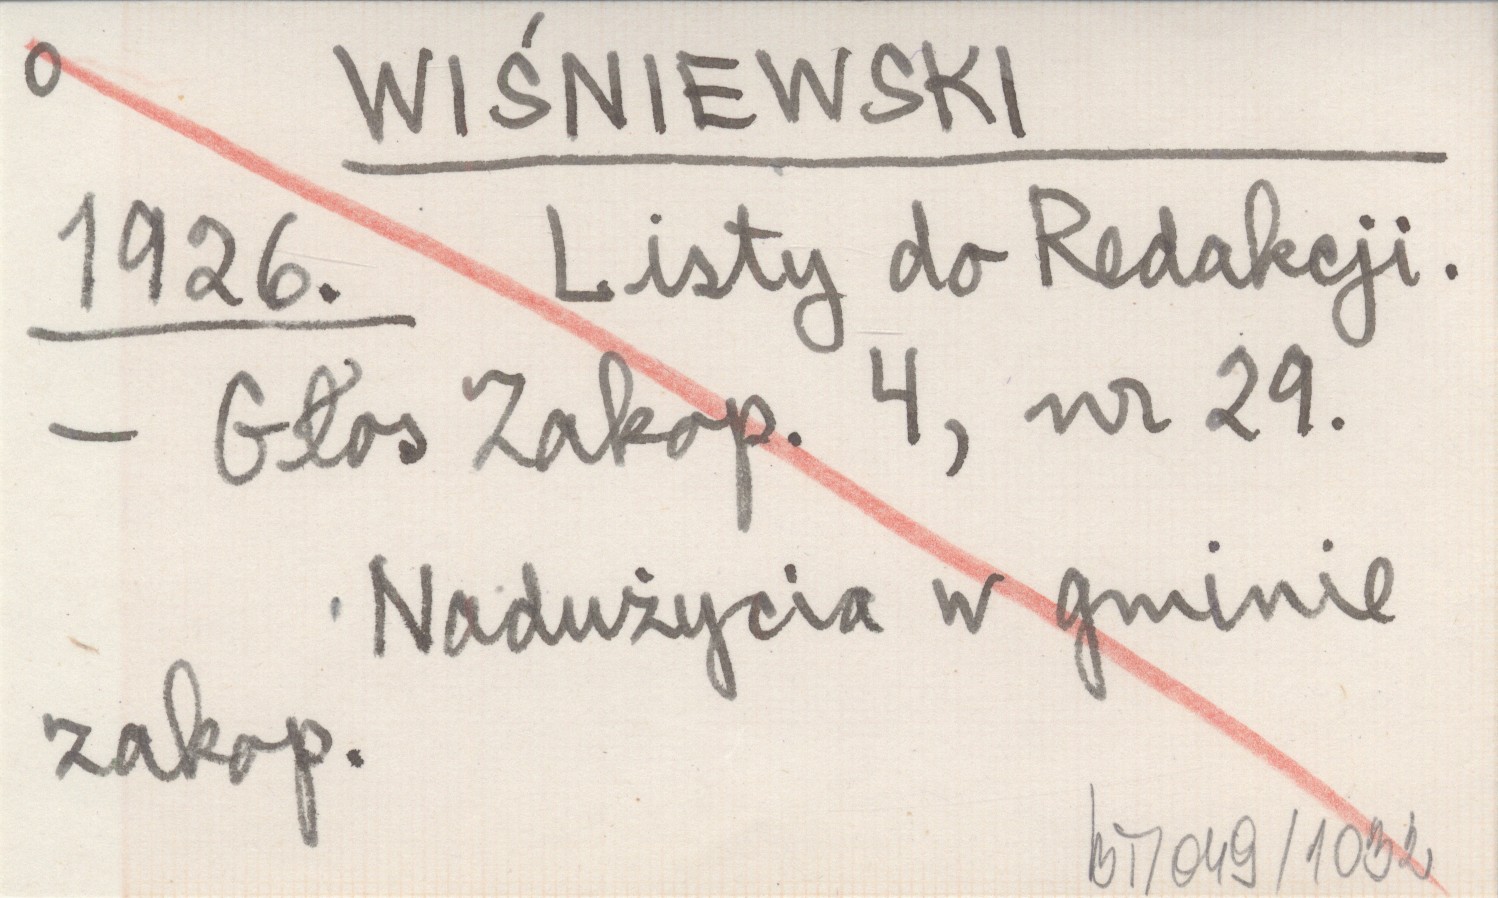 o WIŚNIEWSKI
1926. Listy do Redakcji.
– Głos Zakop. 4, nr 29.
Nadużycia w gminie
zakop.
BT/049/1032